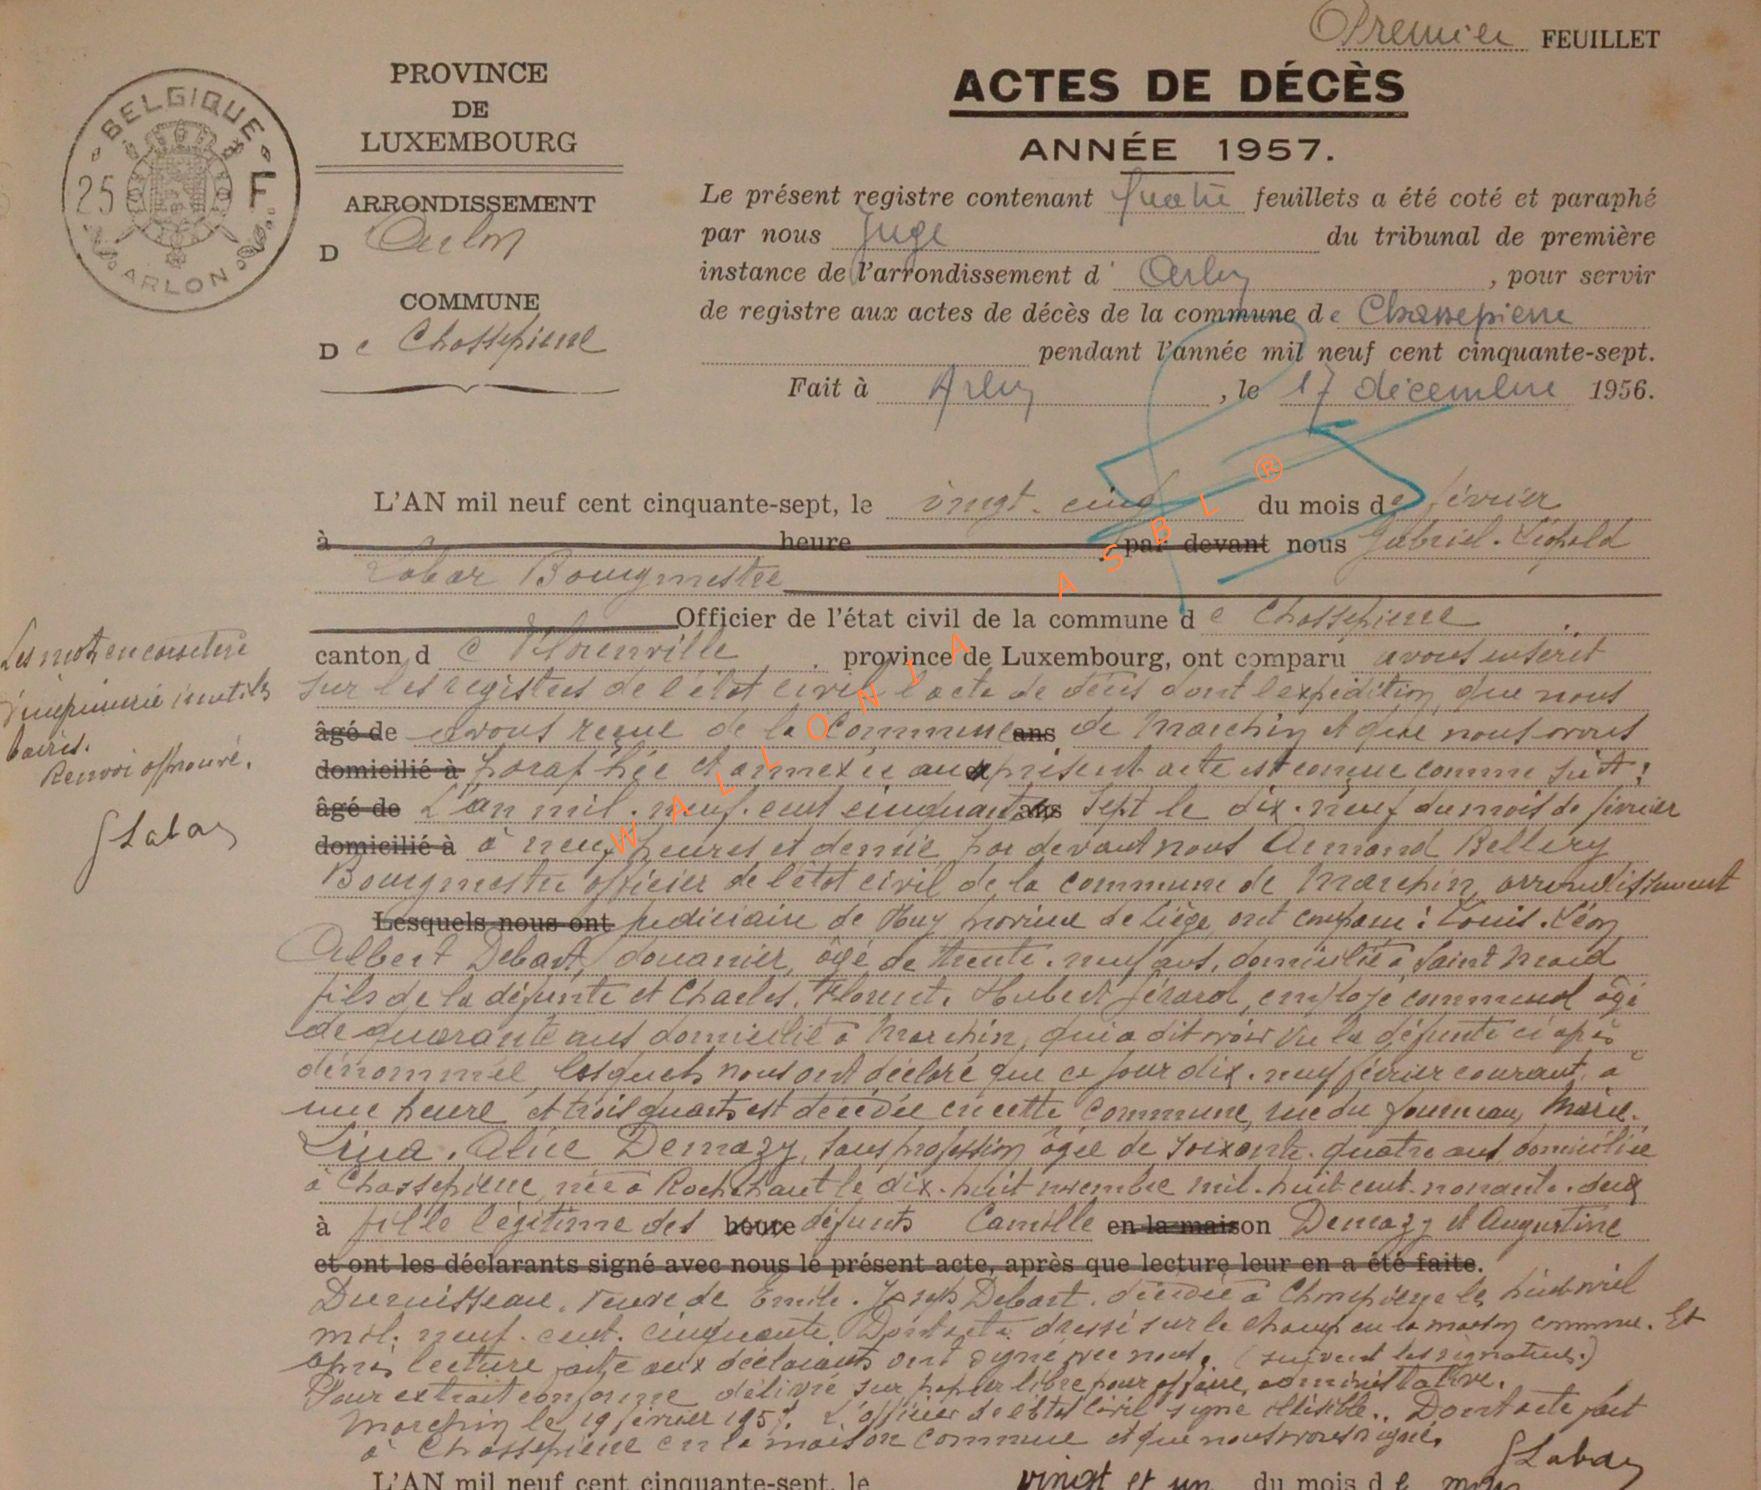 Premier FEUILLET
BELGIQUE
25 F
ARLON
PROVINCE
DE
LUXEMBOURG
ARRONDISSEMENT
D Arlon
COMMUNE
De Chassepierre
ACTES DE DÉCÈS
ANNÉE 1957.
Le présent registre contenant quatre feuillets a été coté et paraphé
par nous Juge du tribunal de première
instance de l'arrondissement d' Arlon, pour servir
de registre aux actes de décès de la commune de Chassepierre
pendant l'année mil neuf cent cinquante-sept.
Fait à Arlon, le 17 décembre 1956.
L'AN mil neuf cent cinquante-sept, le vingt-cinq du mois de février
à heure par devant nous Gabriel-Léopold
Labar Bourgmestre
Officier de l'état civil de la commune de Chassepierre
canton de Florenville, province de Luxembourg, ont comparu avons inscrit
sur les registres de l'état civil l'acte de décès dont l'expédition, que nous
âgé de avons reçue de la Commune ans de Marchin et que nous avons
domicilié à paraphée et annexée au présent acte est conçue comme suit :
âgé de L'an mil neuf cent cinquante ans sept le dix-neuf du mois de février
domicilié à à neuf heures et demie, par devant nous Armand Bellery
Bourgmestre officier de l'état civil de la commune de Marchin, arrondissement
Lesquels nous ont judiciaire de Huy province de Liège, ont comparu : Louis-Léon
Albert Debart, douanier, âgé de trente-neuf ans, domicilié à Saint Mard
fils de la défunte et Charles, Florent, Hubert Gérard, employé communal âgé
de quarante ans domicilié à Marchin, qui a dit avoir vu la défunte ci après
dénommée, lesquels nous ont déclaré que ce jour dix-neuf février courant, à
une heure et trois quarts est décédée en cette Commune, rue du fourneau, Marie-
Lina-Alice Demazy, sans profession âgée de soixante-quatre ans domiciliée
à Chassepierre née à Rochehaut le dix-huit novembre mil-huit cent-nonante-deux
à fille légitime des heure défunts Camille en la maison Demazy et Augustine
et ont les déclarants signé avec nous le présent acte, après que lecture leur en a été faite.
Duruisseau, veuve de Emile-Joseph Debart, décédé à Chassepierre le huit avril
mil-neuf-cent-cinquante. Dont acte dressé sur le champ en la maison commune. Et
après lecture faite aux déclarants ont signé avec nous. (suivent les signatures.)
Pour extrait conforme délivré sur papier libre pour affaire administrative.
Marchin le 19 février 1957. L'officier de l'état Civil signé illisible.. Dont acte fait
à Chassepierre en la maison commune et que nous avons signé.
GLabar
Les mots en caractère
d'imprimerie inutiles
barrés.
Renvoi approuvé.
GLabar
L'AN mil neuf cent cinquante-sept, le vingt et un du mois de mars
WALLONIA ASBL ®